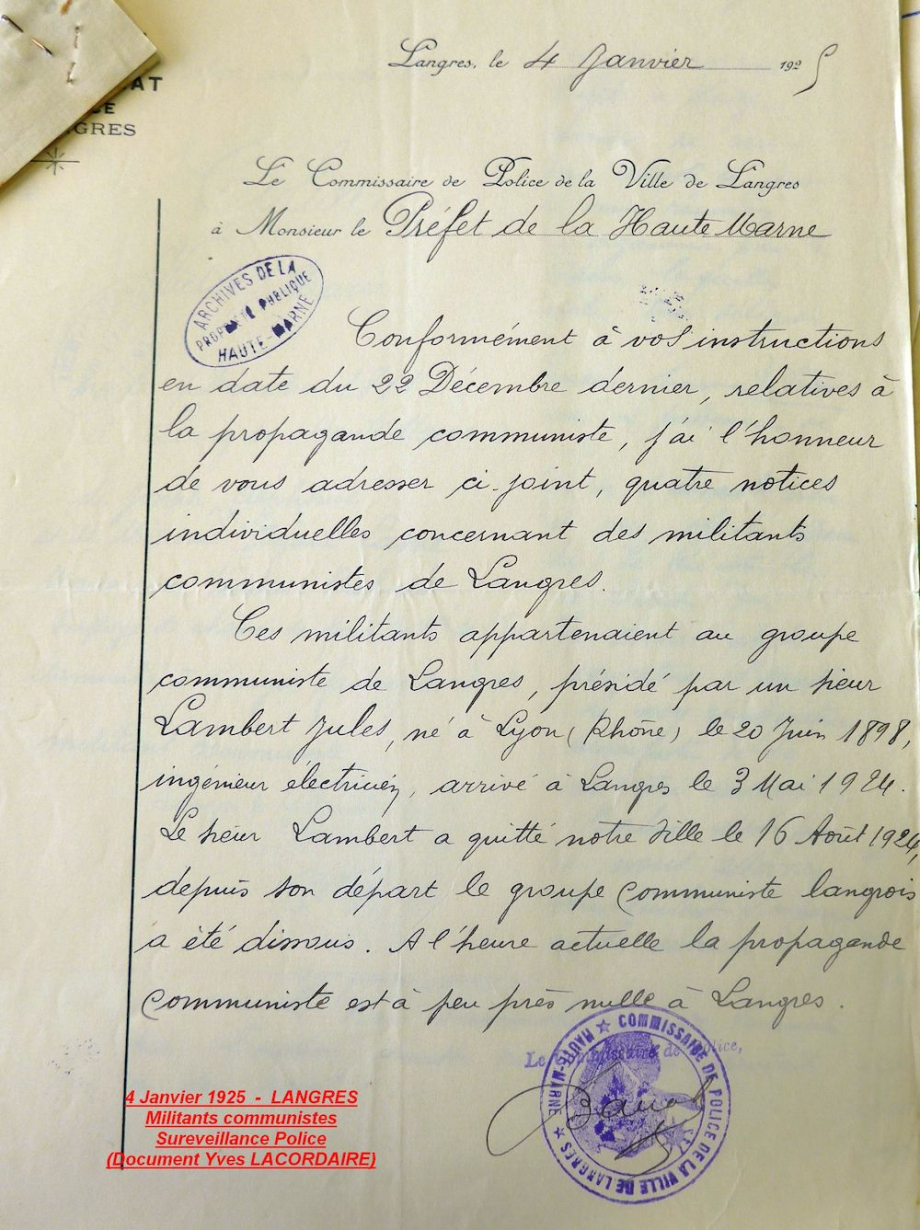 Langres, le 4 Janvier 1925
AT
CE
NGRES
Le Commissaire de Police de la Ville de Langres
à Monsieur le Préfet de la Haute Marne
ARCHIVES DE LA
PROPRIÉTÉ PUBLIQUE
HAUTE-MARNE
Conformément à vos instructions
en date du 22 Décembre dernier, relatives à
la propagande communiste, j'ai l'honneur
de vous adresser ci-joint, quatre notices
individuelles concernant des militants
communistes de Langres.
Ces militants appartenaient au groupe
communiste de Langres, présidé par un sieur
Lambert Jules, né à Lyon (Rhône) le 20 Juin 1898,
ingénieur électricien, arrivé à Langres le 3 Mai 1924.
Le sieur Lambert a quitté notre Ville le 16 Août 1924,
depuis son départ le groupe communiste langrois
a été dissous. A l'heure actuelle la propagande
communiste est à peu près nulle à Langres.
Le Commissaire de Police,
COMMISSAIRE DE POLICE DE LA VILLE DE LANGRES ★ HAUTE-MARNE ★
4 Janvier 1925 - LANGRES
Militants communistes
Sureveillance Police
(Document Yves LACORDAIRE)